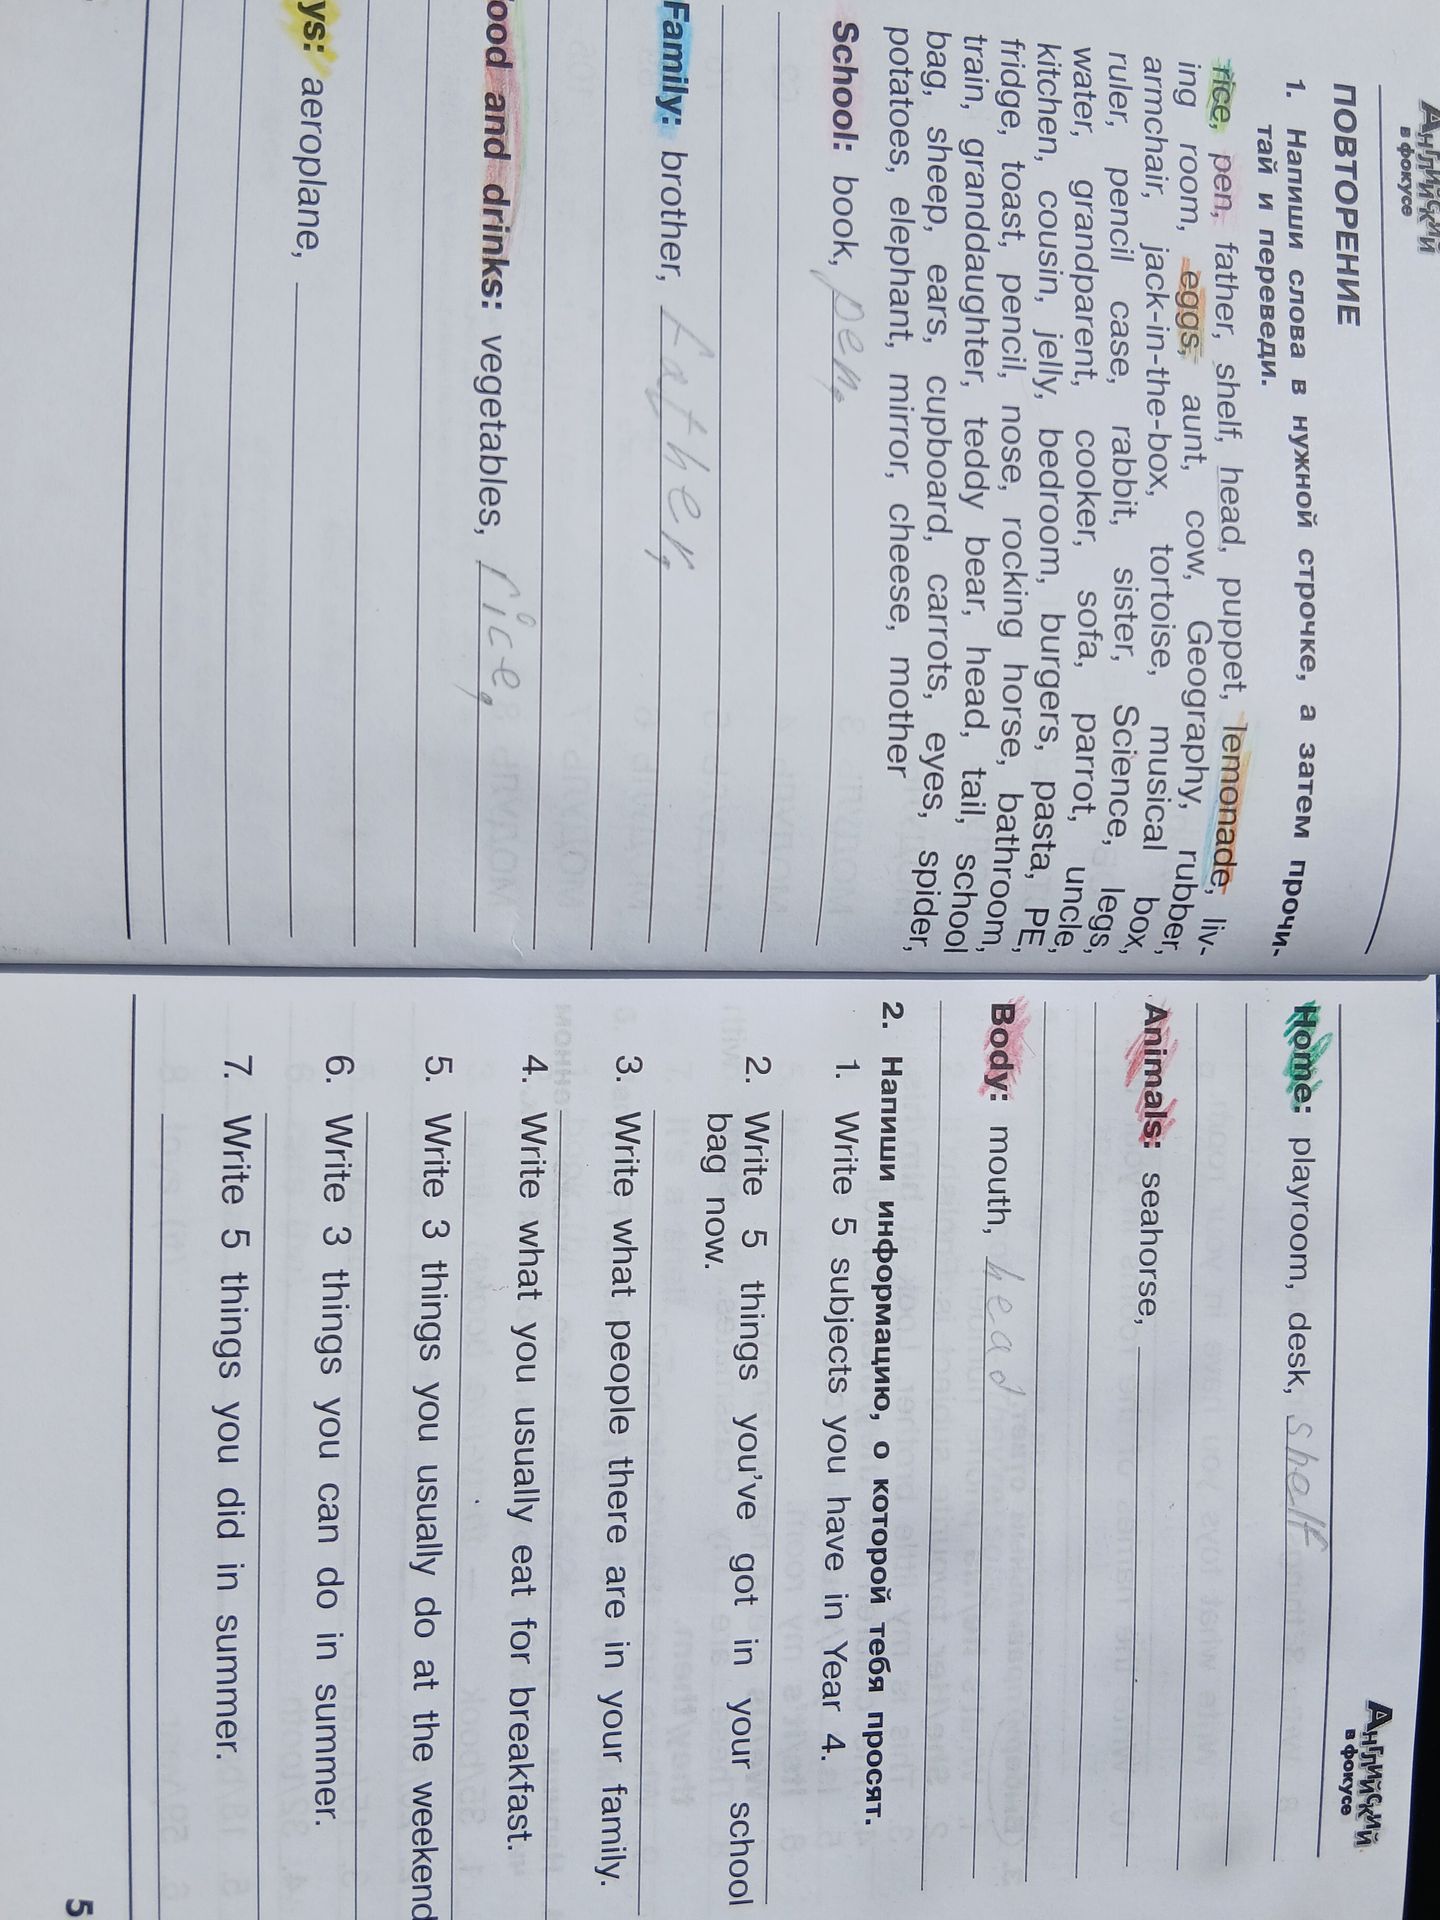 Английский
в фокусе
ПОВТОРЕНИЕ
1. Напиши слова в нужной строчке, а затем прочи-
тай и переведи.
rice, pen, father, shelf, head, puppet, lemonade, liv-
ing room, eggs, aunt, cow, Geography, rubber,
armchair, jack-in-the-box, tortoise, musical box,
ruler, pencil case, rabbit, sister, Science, legs,
water, grandparent, cooker, sofa, parrot, uncle,
kitchen, cousin, jelly, bedroom, burgers, pasta, PE,
fridge, toast, pencil, nose, rocking horse, bathroom,
train, granddaughter, teddy bear, head, tail, school
bag, sheep, ears, cupboard, carrots, eyes, spider,
potatoes, elephant, mirror, cheese, mother
School: book, pen,
Family: brother, father,
ood and drinks: vegetables, rice,
ys: aeroplane,
Английский
в фокусе
Home: playroom, desk, shelf
Animals: seahorse,
Body: mouth, head
2. Напиши информацию, о которой тебя просят.
1. Write 5 subjects you have in Year 4.
2. Write 5 things you've got in your school
bag now.
3. Write what people there are in your family.
4. Write what you usually eat for breakfast.
5. Write 3 things you usually do at the weekend
6. Write 3 things you can do in summer.
7. Write 5 things you did in summer.
5